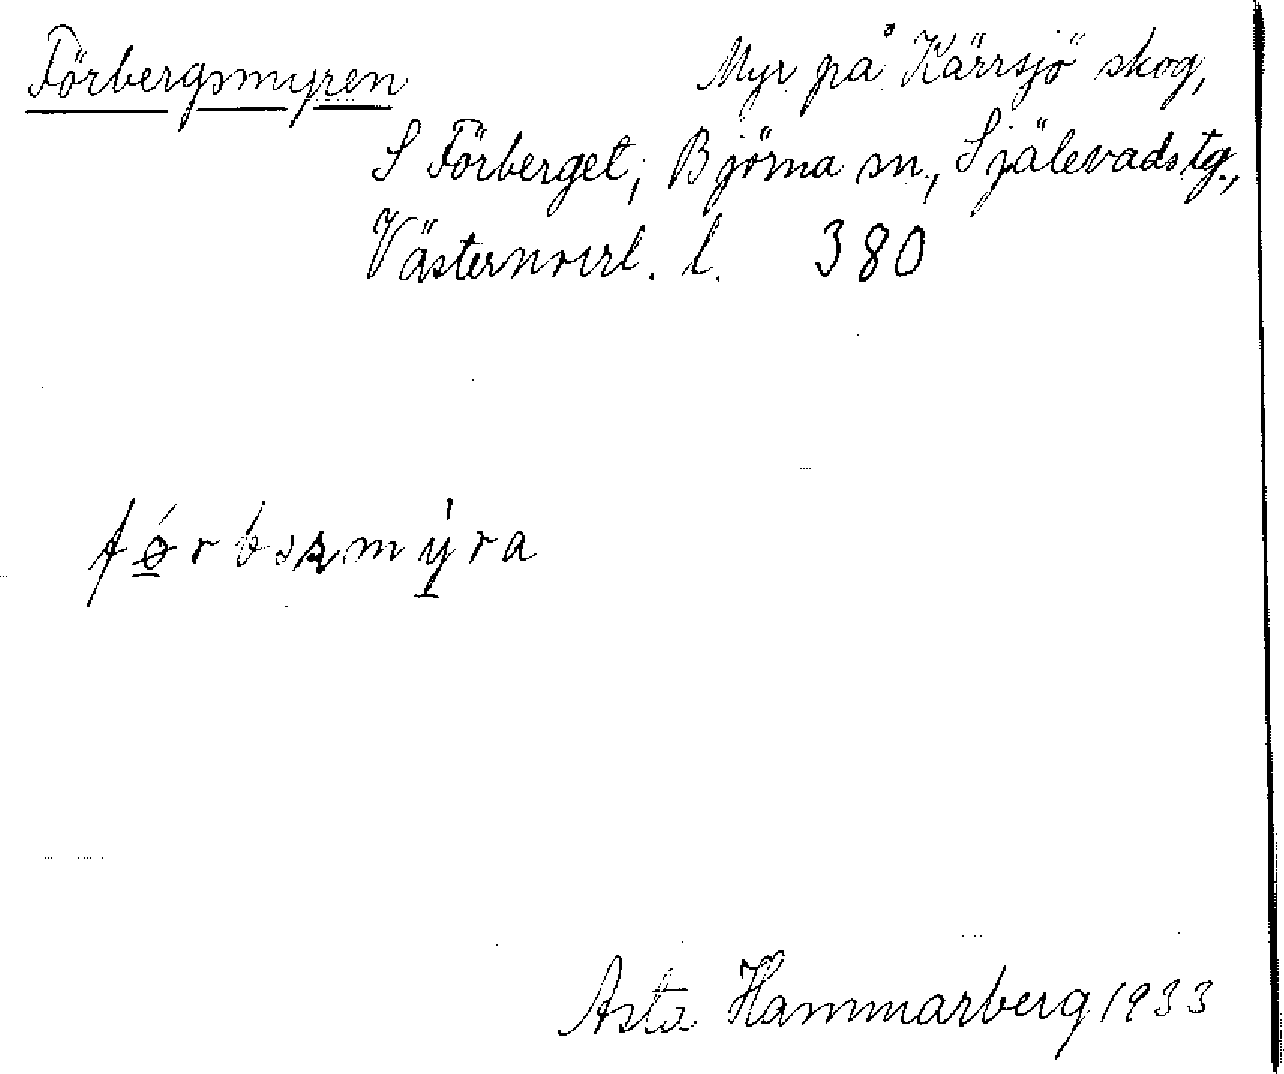 Förbergsmyren Myr på Kärrsjö skog,
S Förberget, Björna sn., Själevads tg.,
Västernorrl. l. 380
Asta Hammarberg 1933